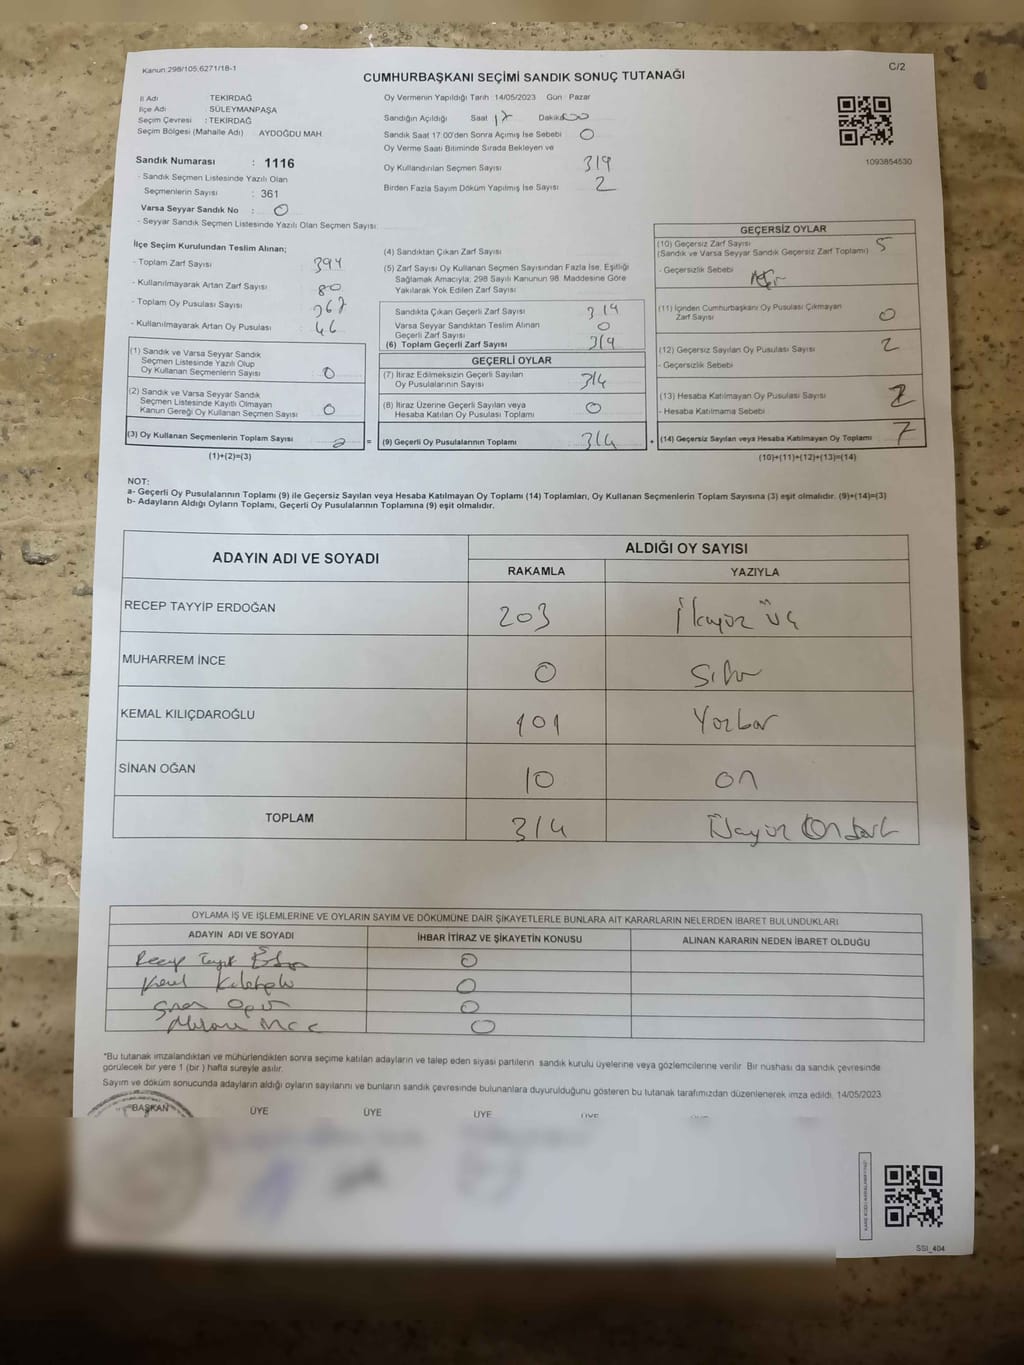 Kanun:298/105,6271/18-1
C/2
CUMHURBAŞKANI SEÇİMİ SANDIK SONUÇ TUTANAĞI
İl Adı TEKİRDAĞ
İlçe Adı : SÜLEYMANPAŞA
Seçim Çevresi : TEKİRDAĞ
Seçim Bölgesi (Mahalle Adı) AYDOĞDU MAH.
Sandık Numarası : 1116
- Sandık Seçmen Listesinde Yazılı Olan
Seçmenlerin Sayısı : 361
Varsa Seyyar Sandık No : 0
- Seyyar Sandık Seçmen Listesinde Yazılı Olan Seçmen Sayısı
Oy Vermenin Yapıldığı Tarih 14/05/2023 Gün : Pazar
Sandığın Açıldığı Saat 17 Dakika 00
Sandık Saat 17:00'den Sonra Açımış İse Sebebi 0
Oy Verme Saati Bitiminde Sırada Bekleyen ve
Oy Kullandırılan Seçmen Sayısı 319
Birden Fazla Sayım Döküm Yapılmış İse Sayısı 2
1093854530
İlçe Seçim Kurulundan Teslim Alınan;
- Toplam Zarf Sayısı 394
- Kullanılmayarak Artan Zarf Sayısı 80
- Toplam Oy Pusulası Sayısı 367
- Kullanılmayarak Artan Oy Pusulası 46
(1) Sandık ve Varsa Seyyar Sandık
Seçmen Listesinde Yazılı Olup
Oy Kullanan Seçmenlerin Sayısı 0
(2) Sandık ve Varsa Seyyar Sandık
Seçmen Listesinde Kayıtlı Olmayan
Kanun Gereği Oy Kullanan Seçmen Sayısı 0
(3) Oy Kullanan Seçmenlerin Toplam Sayısı =
(1)+(2)=(3)
(4) Sandıktan Çıkan Zarf Sayısı
(5) Zarf Sayısı Oy Kullanan Seçmen Sayısından Fazla İse, Eşitliği
Sağlamak Amacıyla; 298 Sayılı Kanunun 98. Maddesine Göre
Yakılarak Yok Edilen Zarf Sayısı
Sandıkta Çıkan Geçerli Zarf Sayısı 314
Varsa Seyyar Sandıktan Teslim Alınan
Geçerli Zarf Sayısı 0
(6) Toplam Geçerli Zarf Sayısı 314
GEÇERLİ OYLAR
(7) İtiraz Edilmeksizin Geçerli Sayılan
Oy Pusulalarının Sayısı 314
(8) İtiraz Üzerine Geçerli Sayılan veya
Hesaba Katılan Oy Pusulası Toplamı 0
(9) Geçerli Oy Pusulalarının Toplamı 314 +
GEÇERSİZ OYLAR
(10) Geçersiz Zarf Sayısı 5
(Sandık ve Varsa Seyyar Sandık Geçersiz Zarf Toplamı)
- Geçersizlik Sebebi
(11) İçinden Cumhurbaşkanı Oy Pusulası Çıkmayan
Zarf Sayısı 0
(12) Geçersiz Sayılan Oy Pusulası Sayısı 2
- Geçersizlik Sebebi
(13) Hesaba Katılmayan Oy Pusulası Sayısı
- Hesaba Katılmama Sebebi
(14) Geçersiz Sayılan veya Hesaba Katılmayan Oy Toplamı 7
(10)+(11)+(12)+(13)=(14)
NOT:
a- Geçerli Oy Pusulalarının Toplamı (9) ile Geçersiz Sayılan veya Hesaba Katılmayan Oy Toplamı (14) Toplamları, Oy Kullanan Seçmenlerin Toplam Sayısına (3) eşit olmalıdır. (9)+(14)=(3)
b- Adayların Aldığı Oyların Toplamı, Geçerli Oy Pusulalarının Toplamına (9) eşit olmalıdır.
ADAYIN ADI VE SOYADI
ALDIĞI OY SAYISI
RAKAMLA YAZIYLA
RECEP TAYYİP ERDOĞAN 203 İkiyüz üç
MUHARREM İNCE 0 Sıfır
KEMAL KILIÇDAROĞLU 101 Yüzbir
SİNAN OĞAN 10 on
TOPLAM 314 Üçyüz Ondört
OYLAMA İŞ VE İŞLEMLERİNE VE OYLARIN SAYIM VE DÖKÜMÜNE DAİR ŞİKAYETLERLE BUNLARA AİT KARARLARIN NELERDEN İBARET BULUNDUKLARI
ADAYIN ADI VE SOYADI İHBAR İTİRAZ VE ŞİKAYETİN KONUSU ALINAN KARARIN NEDEN İBARET OLDUĞU
Recep 0
Kemal 0
Sinan Oğan 0
0
"Bu tutanak imzalandıktan ve mühürlendikten sonra seçime katılan adayların ve talep eden siyasi partilerin sandık kurulu üyelerine veya gözlemcilerine verilir. Bir nüshası da sandık çevresinde
görülecek bir yere 1 (bir ) hafta süreyle asılır.
Sayım ve döküm sonucunda adayların aldığı oyların sayılarını ve bunların sandık çevresinde bulunanlara duyurulduğunu gösteren bu tutanak tarafımızdan düzenlenerek imza edildi. 14/05/2023
BAŞKAN ÜYE ÜYE ÜYE ÜYE
SSI_404